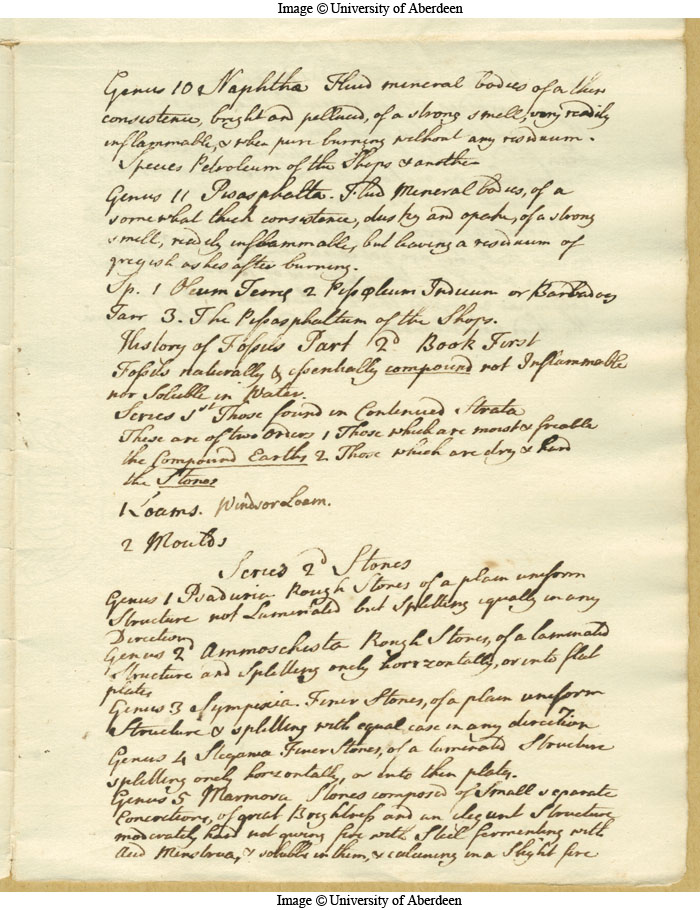 Image © University of Aberdeen
Genus 10 Naphtha Fluid mineral bodies of a thin
consistence, bright and pellucid, of a strong smell, very readily
inflammable, & when pure burning without any residuum.
Species Petroleum of the Shops & another
Genus 11 Pisasphalta. Fluid Mineral bodies, of a
somewhat thick consistence, dusky and opake, of a strong
smell, readily inflammable, but leaving a residuum of
greyish ashes after burning.
Sp. 1 Oleum Terræ 2 Pissœleum Indicum or Barbadoes
Tarr 3. The Pissasphaltum of the Shops.
History of Fossils Part 2d Book First
Fossils naturally & essentially compound not Inflammable
nor Soluble in Water.
Series 1st Those found in Continued Strata
These are of two orders 1 Those which are moist & friable
the Compound Earths 2 Those which are dry & hard
the Stones
1 Loams. Windsor Loam.
2 Moulds
Series 2d Stones
Genus 1 Psaduria Rough Stones of a plain uniform
Structure not Laminated but Splitting equally in any
Direction
Genus 2d Ammoschista Rough Stones, of a laminated
Structure and Splitting only horizontally, or into flat
plates
Genus 3 Symplexia. Finer Stones, of a plain uniform
Structure & splitting with equal ease in any direction
Genus 4 Stegania Finer Stones, of a laminated Structure
splitting only horizontally, or into thin plates.
Genus 5 Marmora Stones composed of Small separate
Concretions, of great Brightness and an elegant Structure
moderately hard not giving fire with Steel fermenting with
Acid Menstrua, & soluble in them, & calcining in a Slight fire
Image © University of Aberdeen